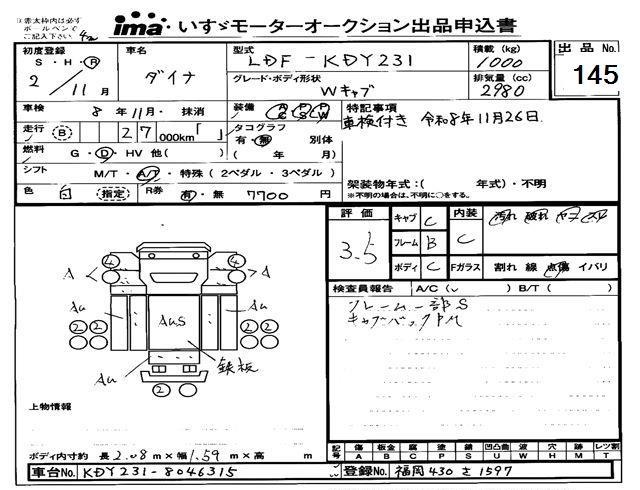 ※赤太枠内は必ず
ボールペンで
ご記入下さい
ima いすゞモーターオークション出品申込書
初度登録 S・H・R 2/11月
車名 ダイナ
型式 LDF-KDY231
グレード・ボディ形状 Wキャブ
積載(kg) 1000
排気量(cc) 2980
出品No. 145
車検 8年11月・抹消
装備 AC PS PW
特記事項
車検付き 令和8年11月26日
走行 B 27,000km「 」
タコグラフ 有・無 別体
( 年 月)
燃料 G・D・HV 他( )
シフト M/T・A/T・特殊(2ペダル・3ペダル)
架装物年式:( 年式)・不明
※不明の場合は、不明に○をする。
色 白 (指定) R券 有・無 7700円
評価 3.5
キャブ C
フレーム B
ボディ C
内装 C
汚れ 破れ ヤコ スレ
Fガラス 割れ 線 点傷 イバリ
検査員報告 A/C( ) B/T( )
フレーム一部S
キャブバックPM
4 4
A A
Au Au
AuS
2 2 2 2
Au 鉄板
2
上物情報
ボディ内寸約 長2.08m×幅1.59m×高 m
記号 傷A 板金B 腐C 塗P 錆S 凹凸曲U 波W 穴H 跡M レツ割T
車台No. KDY231-8046315
登録No. 福岡430さ1597